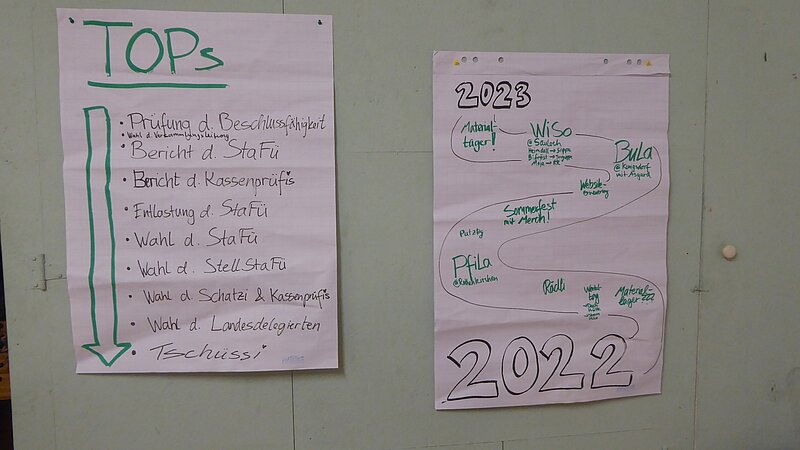 TOPs
• Prüfung d. Beschlussfähigkeit
• Wahl d. Versammlungsleitung
• Bericht d. StaFü
• Bericht d. Kassenprüfis
• Entlastung d. StaFü
• Wahl d. StaFü
• Wahl d. Stell.StaFü
• Wahl d. Schatzi & Kassenprüfis
• Wahl d. Landesdelegierten
• Tschüssi
2023
Material-
träger!
WiSo
@Sauloch
Heimdall → Sippe
BuLa
@Königsdorf
mit Asgard
Website-
Sommerfest
mit Merch!
Putztag
PfiLa
Rädli
Material-
lager
2022